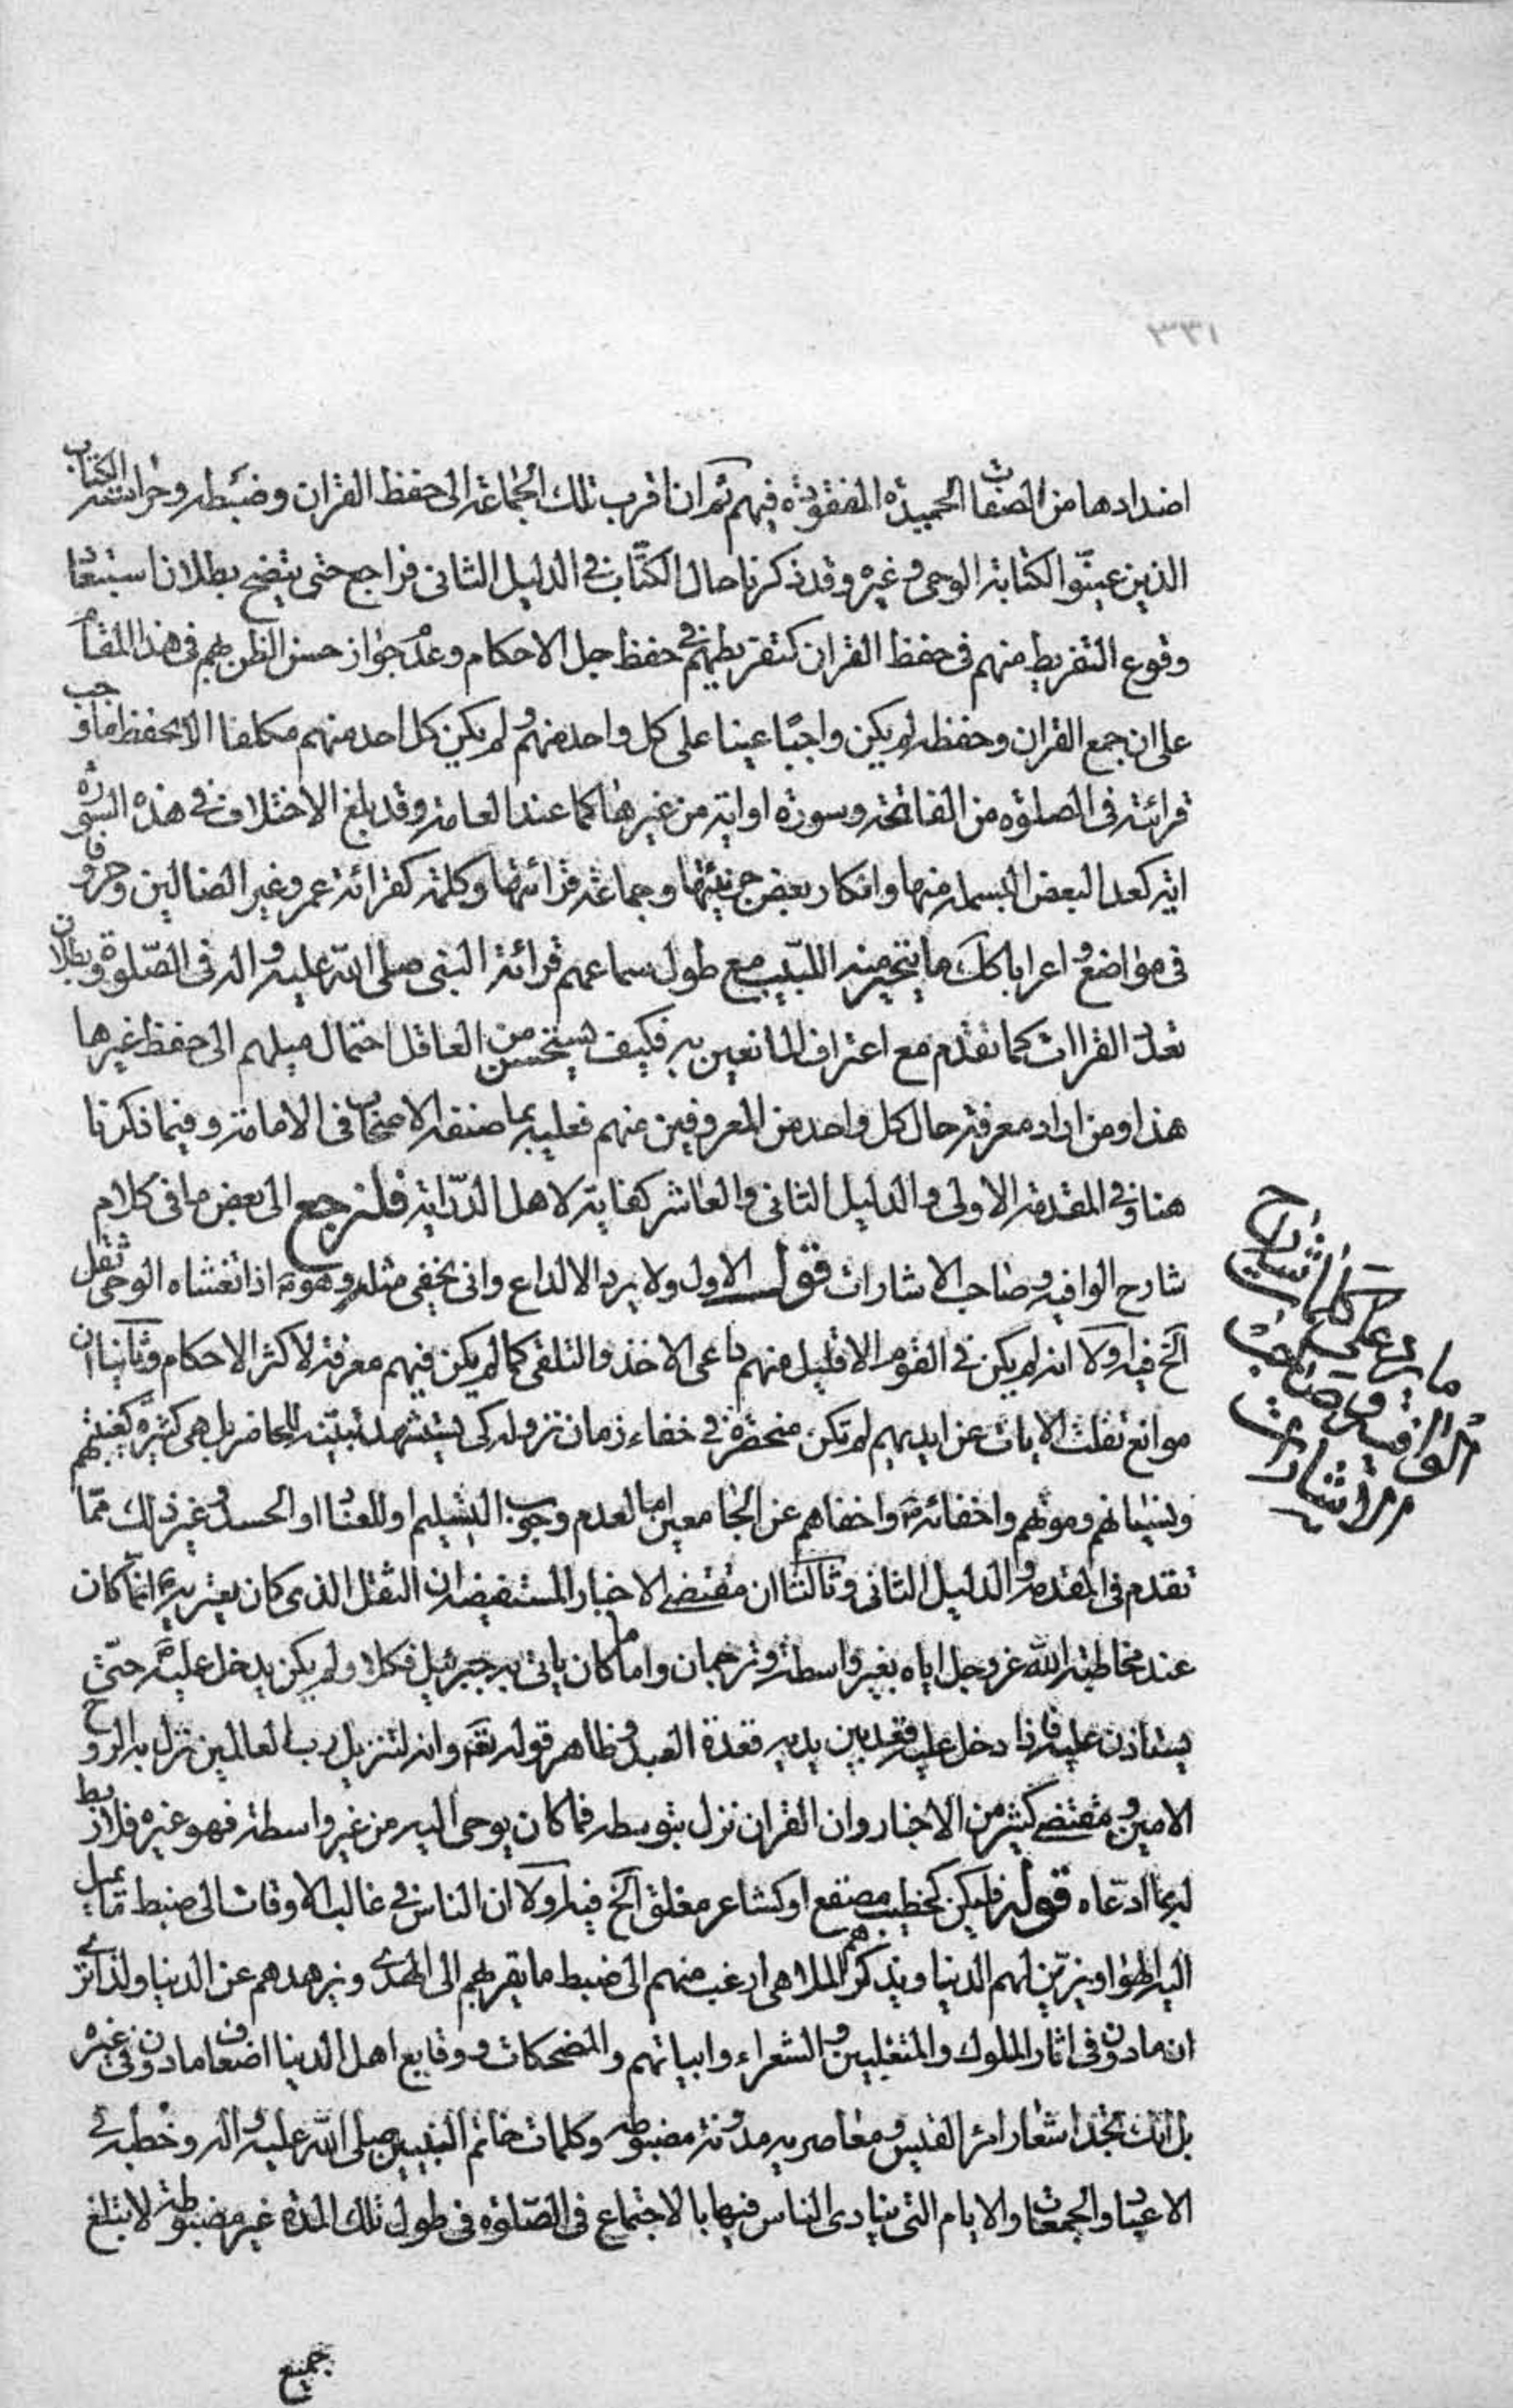 ٣٣١
اضدادها من الصفات الحميدة المفقودة فيهم ثم ان اقرب تلك الجماعة الى حفظ القران وضبطه وحراسته الكتاب
الذين عينوا لكتابة الوحى وغيره وقد ذكرنا حال الكتّاب فى الدليل الثانى فراجع حتى يتضح بطلان استبعاد
وقوع التفريط منهم فى حفظ القران كتفريطهم فى حفظ جل الاحكام وعدم جواز حسن الظن بهم فى هذا المقام
على ان جمع القران وحفظه لم يكن واجبًا عينا على كل واحد منهم ولم يكن كل احد منهم مكلفا الا بحفظ ما وجب
قرائته فى الصلوة من الفاتحة وسورة او اية من غيرها كما عند العامة وقد بلغ الاختلاف فى هذه السورة
اية كعد البعض البسملة منها وانكار بعض جزئيتها وجماعة قرائتها وكلمة كقرائة عمر وغير الضالين وحروفا
فى مواضع واعرابا كك ما يتحير منه اللبيب مع طول سماعهم قرائة النبى صلى الله عليه واله فى الصّلوة وبطلان
تعدد القراات كما تقدم مع اعتراف المانعين به فكيف يستحسن من العاقل احتمال ميلهم الى حفظ غيرها
هذا ومن اراد معرفة حال كل واحد من المعروفين منهم فعليه بما صنفه الاصحاب فى الامامة وفيما ذكرنا
هنا وفى المقدمة الاولى والدليل الثانى والعاشر كفاية لاهل الدّراية فلنرجع الى بعض ما فى كلام
شارح الوافية وصاحب الاشارات قوله الاول ولا يرد الا لداع وانى يخفى مثله وهو ص اذا تغشاه الوحى ثقل
آلخ فيه اولا انه لم يكن فى القوم الا قليل منهم داعى الاخذ والتلقى كما لم يكن فيهم معرفة لاكثر الاحكام وثانيا ان
موانع تفلت الايات عن ايديهم لم تكن منحصرة فى خفاء زمان نزوله كى يستشهد لبينه للحاضر بل هى كثيرة كغيبتهم
ونسيانهم وموتهم واخفائه ص واخفاهم عن الجامعين اما لعدم وجوب التسليم او للعناد او الحسد وغير ذلك ممّا
تقدم فى المقدمة والدليل الثانى وثالثا ان مقتضى الاخبار المستفيضة ان الثقل الذى كان يعتريه ص انما كان
عند مخاطبة الله عز وجل اياه بغير واسطة وترجمان واما ما كان ياتى به جبرئيل فكلا ولم يكن يدخل عليه ص حتى
يستاذن عليه فاذا دخل عليه قعد بين يديه قعدة العبد وظاهر قوله تعالى وانه لتنزيل رب العالمين نزل به الروح
الامين ومقتضى كثير من الاخبار وان القران نزل بتوسطه فما كان يوحى اليه من غير واسطة فهو غيره فلا ربط
له بما ادّعاه قوله فليكن كخطيب مصقع او كشاعر مغلق آلخ فيه اولا ان الناس فى غالب الاوقات الى ضبط ما يميل
اليه الهوا ويزيّن لهم الدنيا ويذكرهم الملاهى ارغب منهم الى ضبط ما يقربهم الى الهدى ويزهدهم عن الدنيا ولذا ترى
ان ما دون فى اثار الملوك والمتغلبين والشعراء وابياتهم والمضحكات ووقايع اهل الدنيا اضعاف ما دون فى غيره
بل انك تجد اشعار امرء القيس ومعاصريه مدونة مضبوطة وكلمات خاتم النبيين صلى الله عليه واله وخطبه فى
الاعياد والجمعات والايام التى ينادى الناس فيها بالاجتماع فى الصّلوة فى طول تلك المدة غير مضبوطة لا يبلغ
ما يرد على كلمات شارح
الوافية وصاحب
الاشارات
جميع